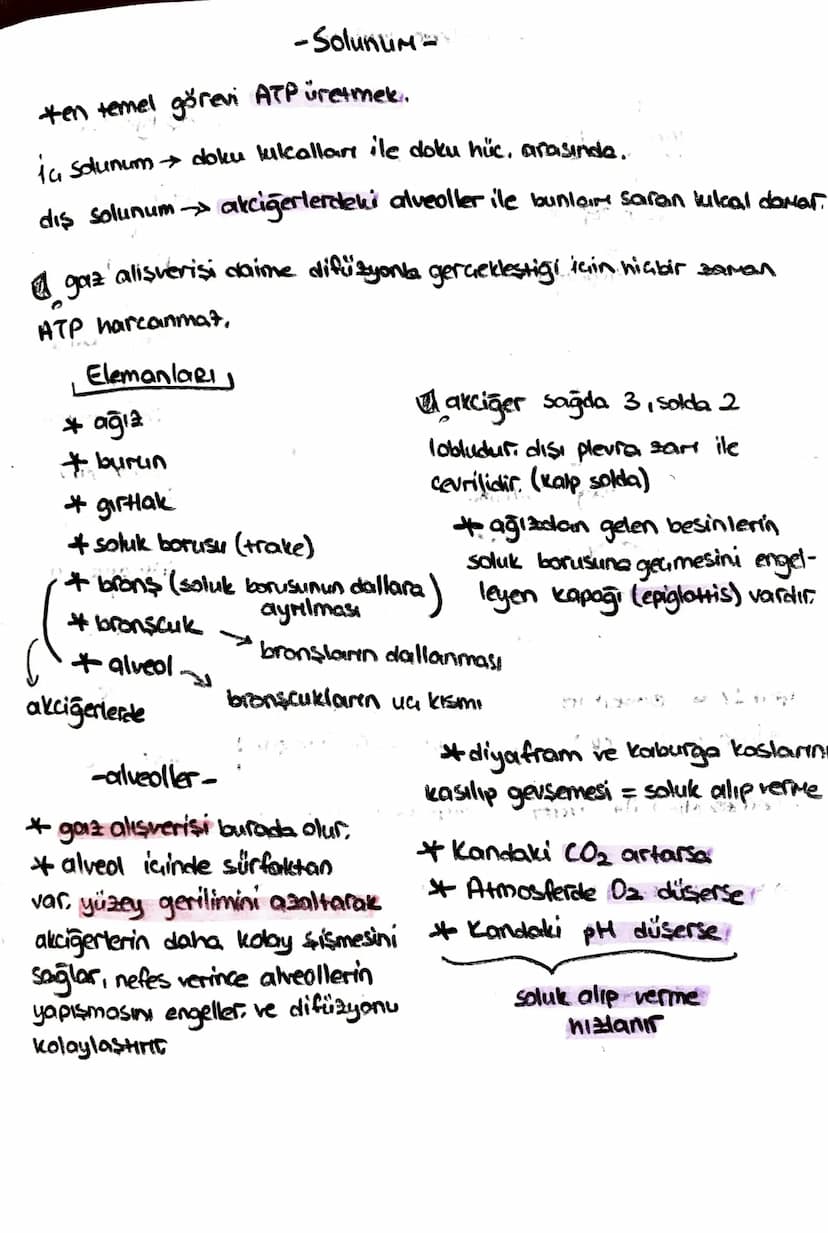 -Solunum-
*en temel görevi ATP üretmek.
iç solunum → doku kılcalları ile doku hüc. arasında.
dış solunum → akciğerlerdeki alveoller ile bunları saran kılcal damar.
gaz alışverişi daima difüzyonla gerçekleştiği için hiçbir zaman
ATP harcanmaz.
Elemanları
* ağız
* burun
* gırtlak
* soluk borusu (trake)
* bronş (soluk borusunun dallara
ayrılması)
* bronşcuk → bronşların dallanması
* alveol → bronşcukların uç kısmı
akciğerlerde
-alveoller-
* gaz alışverişi burada olur.
* alveol içinde sürfaktan
var. yüzey gerilimini azaltarak
akciğerlerin daha kolay şişmesini
sağlar, nefes verince alveollerin
yapışmasını engeller. ve difüzyonu
kolaylaştırır
akciğer sağda 3, solda 2
lobludur. dışı plevra zarı ile
çevrilidir. (kalp solda)
* ağızdan gelen besinlerin
soluk borusuna geçmesini engel-
leyen kapağı (epiglottis) vardır.
* diyafram ve kaburga kasların
kasılıp gevşemesi = soluk alıp verme
* Kandaki CO2 artarsa
* Atmosferde O2 düşerse
* Kandaki pH düşerse
soluk alıp verme
hızlanır